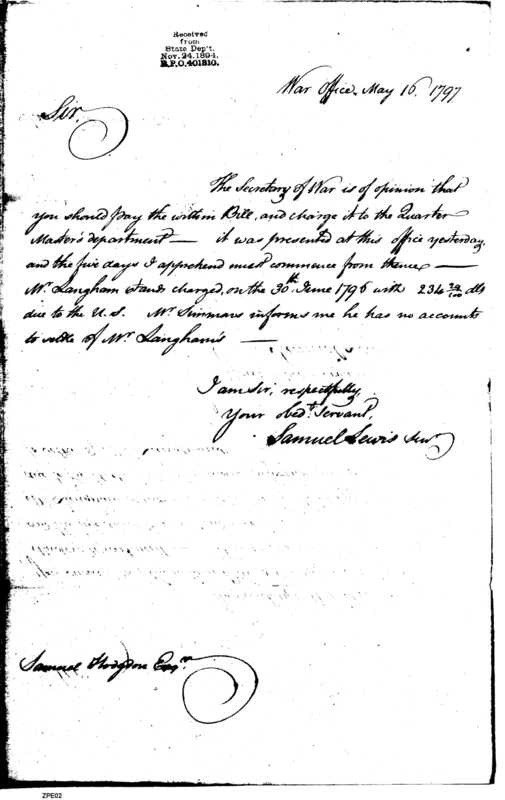 Received
from
State Dep't.
Nov. 24. 1894.
R.P.O. 401810.
War Office, May 16. 1797
Sir,
The Secretary of War is of opinion that
you should pay the within Bill, and charge it to the Quarter
Master's department — it was presented at this office yesterday,
and the five days I apprehend must commence from thence —
Mr. Langham stands charged, on the 30th June 1796 with 234 dls
due to the U.S. Mr. Simmons informs me he has no accounts
to settle of Mr. Langham's —
I am Sir, respectfully,
Your Obedt. Servant,
Samuel Lewis Senr.
Samuel Hodgdon Esqr.
ZPE02